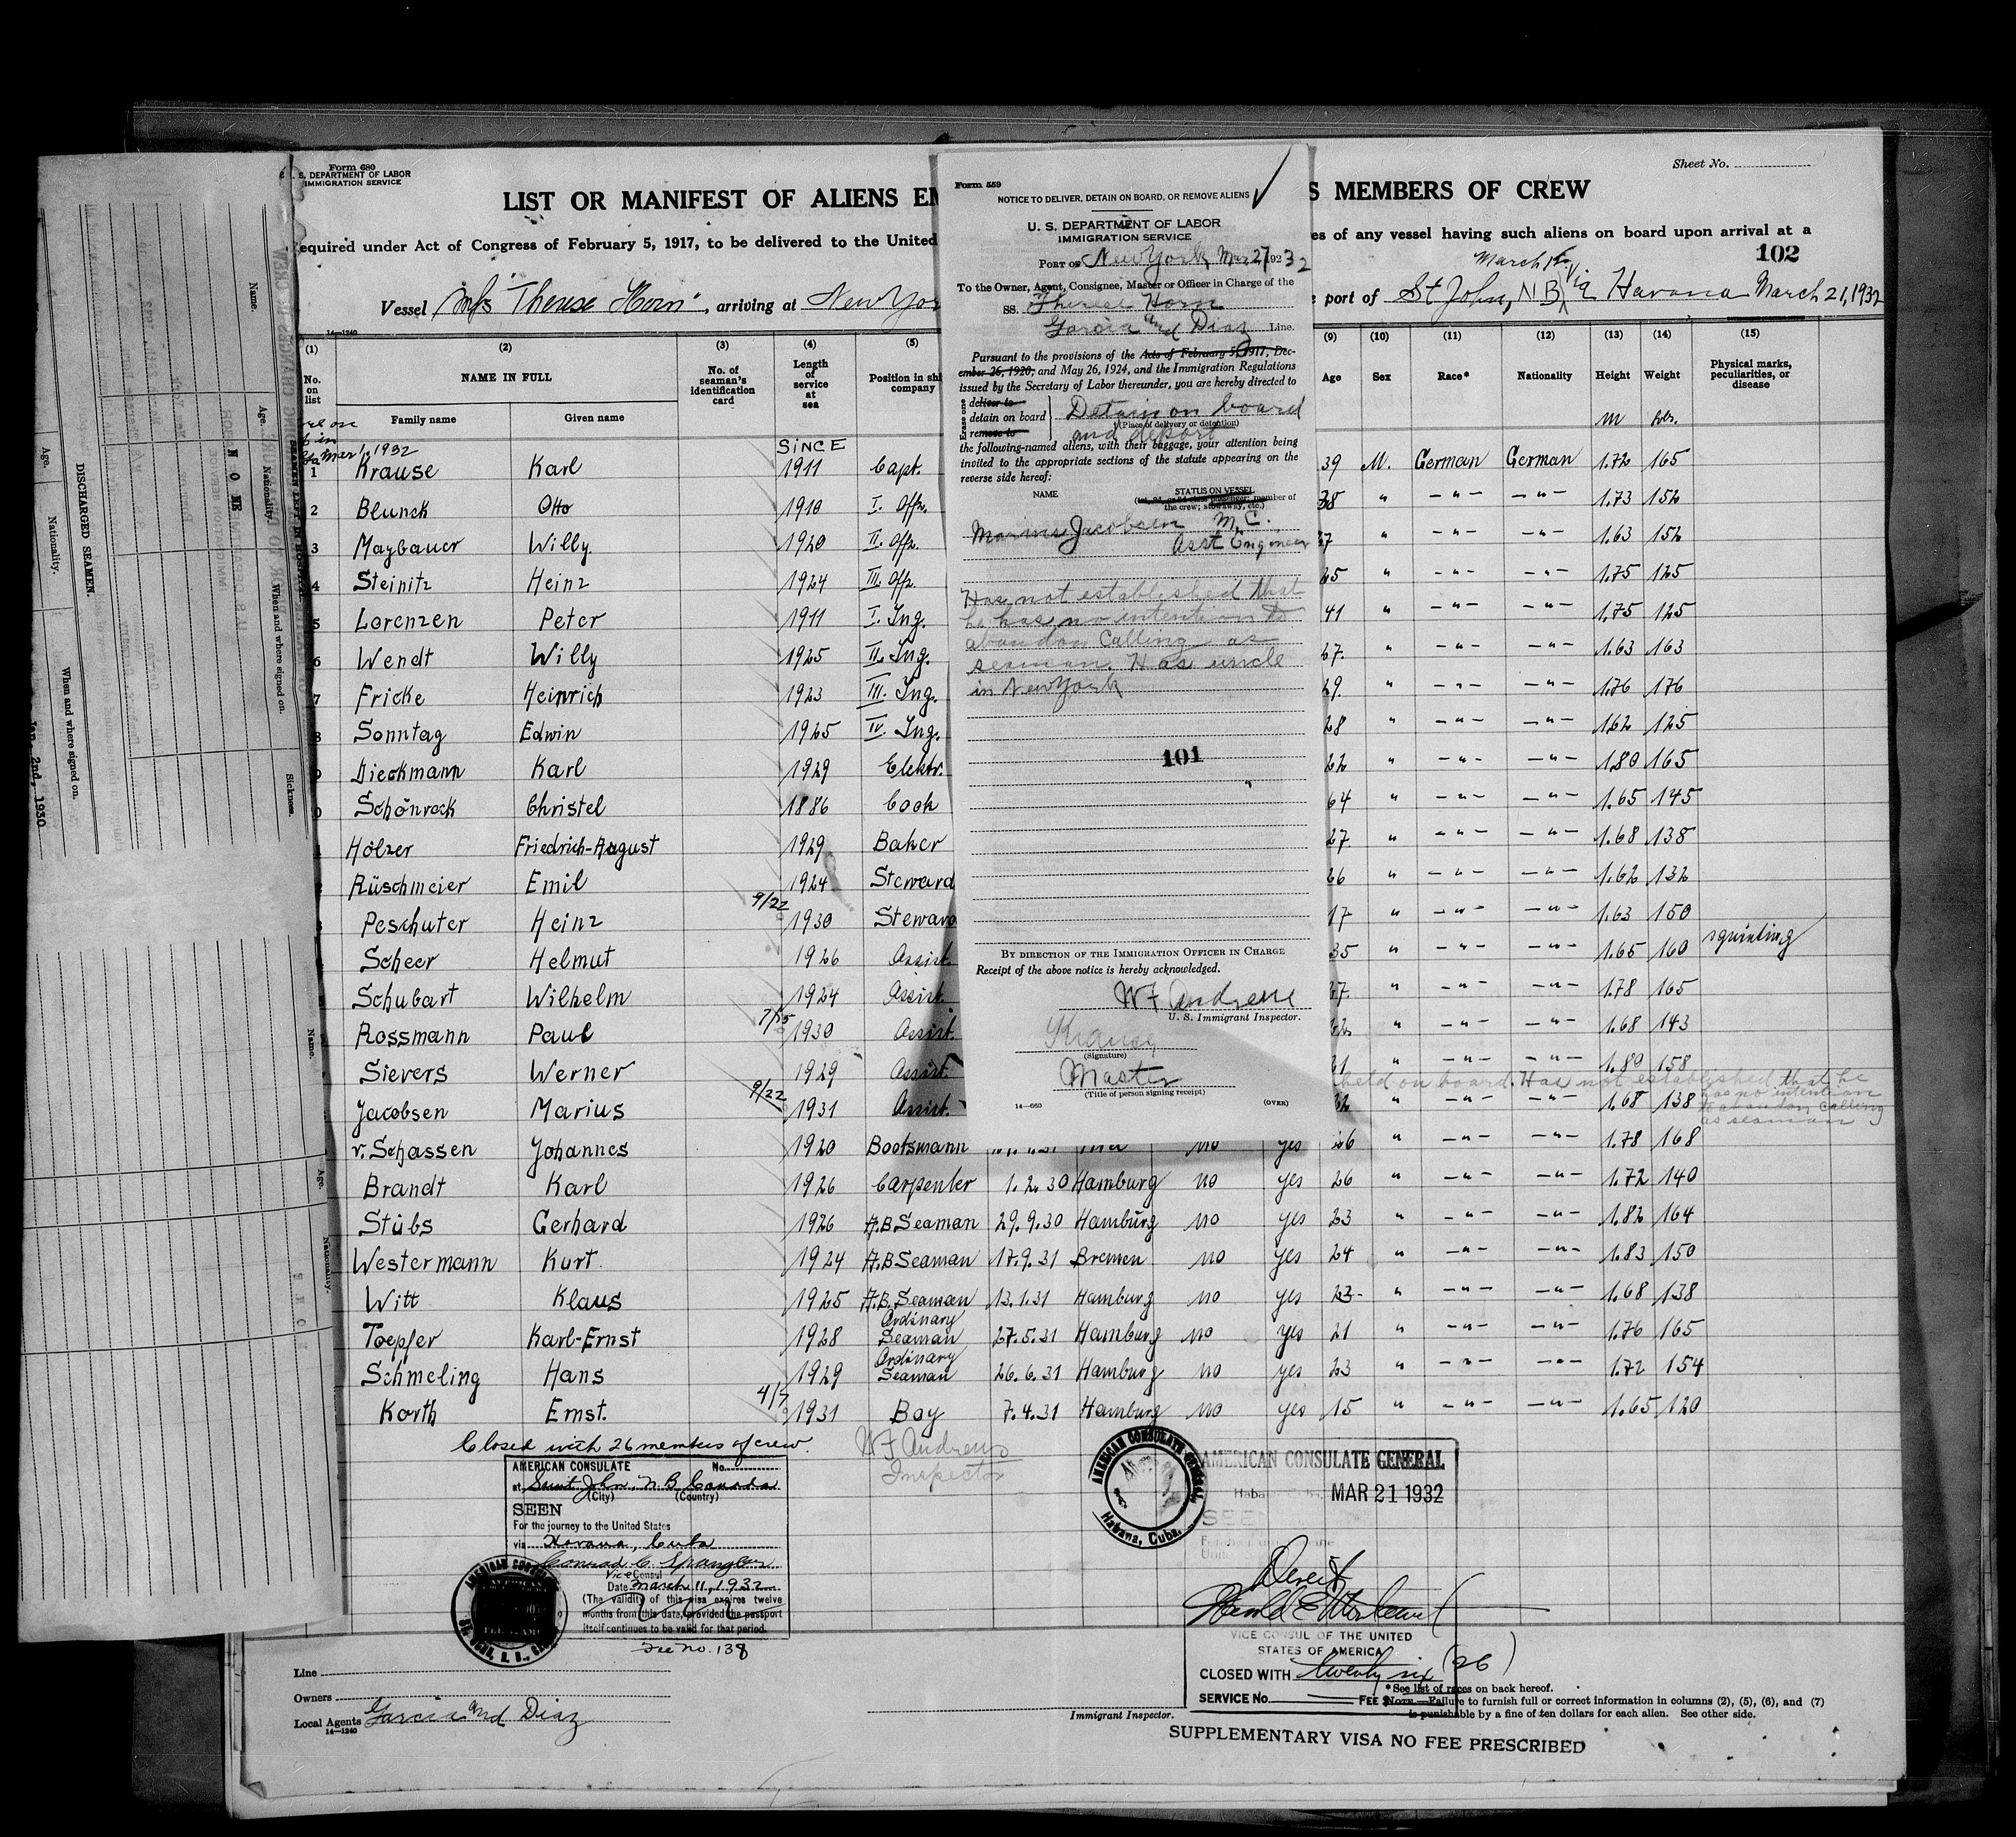 Form 680
U. S. DEPARTMENT OF LABOR
IMMIGRATION SERVICE
Sheet No.
LIST OR MANIFEST OF ALIENS EM
S MEMBERS OF CREW
equired under Act of Congress of February 5, 1917, to be delivered to the United
es of any vessel having such aliens on board upon arrival at a
102
Vessel M/s "Therese Horn", arriving at New Yor
port of St John, NB via Havana March 21, 1932
14—1240
(1) (2) (3) (4) (5)
(9) (10) (11) (12) (13) (14) (15)
No. on list NAME IN FULL No. of seaman's identification card Length of service at sea Position in shi company
Age Sex Race* Nationality Height Weight Physical marks, peculiarities, or disease
Family name Given name
Mar 1, 1932
SINCE
1 Krause Karl 1911 Capt. 39 M. German German 1.72 165
2 Blunck Otto 1910 I. Offz. 38 " —"— —"— 1.73 152
3 Maybauer Willy. 1920 II. Offz. 37 " —"— —"— 1.63 152
4 Steinitz Heinz 1924 III. Offz. 25 " —"— —"— 1.75 125
5 Lorenzen Peter 1911 I. Ing. 41 " —"— —"— 1.75 125
6 Wendt Willy 1925 II. Ing. 27. " —"— —"— 1.63 163
7 Fricke Heinrich 1923 III. Ing. 29. " —"— —"— 1.76 176
8 Sonntag Edwin 1925 IV. Ing. 28 " —"— —"— 1.62 125
9 Dieckmann Karl 1929 Elektr. 22 " —"— —"— 1.80 165
0 Schönrock Christel 1886 Cook 64 " —"— —"— 1.65 145
Hölzer Friedrich-August 1929 Baker 27 " —"— —"— 1.68 138
Rüschmeier Emil 1924 Steward 26 " —"— —"— 1.62 132
Peschuter Heinz 9/22 1930 Steward 17 " —"— —"— 1.63 150
Scheer Helmut 1926 Assist. 35 " —"— —"— 1.65 160 squinting
Schubart Wilhelm 1924 Assist. 27. " —"— —"— 1.78 165
Rossmann Paul 7/15 1930 Assist. 22 " —"— —"— 1.68 143
Sievers Werner 1929 Assist. 21 " —"— —"— 1.80 158
held on board. Has not established that he has no intention to abandon calling as seaman
Jacobsen Marius 9/22 1931 Assist. 22 " —"— —"— 1.68 138
v. Schassen Johannes 1920 Bootsmann no yes 26 " —"— —"— 1.78 168
Brandt Karl 1926 Carpenter 1.2.30 Hamburg no yes 26 " —"— —"— 1.72 140
Stübs Gerhard 1926 A.B Seaman 29.9.30 Hamburg no yes 23 " —"— —"— 1.82 164
Westermann Kurt. 1924 A.B Seaman 17.9.31 Bremen no yes 24 " —"— —"— 1.83 150
Witt Klaus 1925 A.B. Seaman 13.1.31 Hamburg no yes 23 " —"— —"— 1.68 138
Toepfer Karl-Ernst 1928 Ordinary Seaman 27.5.31 Hamburg no yes 21 " —"— —"— 1.76 165
Schmeling Hans 1929 Ordinary Seaman 26.6.31 Hamburg no yes 23 " —"— —"— 1.72 154
Korth Ernst. 4/7 1931 Boy 7.4.31 Hamburg no yes 15 " —"— —"— 1.65 120
Closed with 26 members of crew.
WF Andrews
Inspector
Form 559
NOTICE TO DELIVER, DETAIN ON BOARD, OR REMOVE ALIENS
U. S. DEPARTMENT OF LABOR
IMMIGRATION SERVICE
PORT OF New York, Mar 27 1932
To the Owner, Agent, Consignee, Master or Officer in Charge of the
SS. Therese Horn
Garcia and Diaz Line.
Pursuant to the provisions of the Acts of February 5, 1917, Dec-
ember 26, 1920, and May 26, 1924, and the Immigration Regulations
issued by the Secretary of Labor thereunder, you are hereby directed to
Erase one
deliver to
detain on board
remove to
Detain on board
(Place of delivery or detention)
and deport
the following-named aliens, with their baggage, your attention being
invited to the appropriate sections of the statute appearing on the
reverse side hereof:
NAME STATUS ON VESSEL
(1st, 2d, or 3d class passenger; member of
the crew; stowaway, etc.)
Marius Jacobsen M.C.
Asst Engineer
Has not established that
he has no intention to
abandon calling as
seaman. Has uncle
in New York
101
BY DIRECTION OF THE IMMIGRATION OFFICER IN CHARGE
Receipt of the above notice is hereby acknowledged.
WF Andrews
U. S. Immigrant Inspector.
Krause
(Signature)
Master
(Title of person signing receipt)
14—660
(OVER)
AMERICAN CONSULATE No.
at Saint John, N.B. Canada
(City) (Country)
SEEN
For the journey to the United States
via Havana, Cuba
Conrad C. Spangler
Vice Consul
Date March 11, 1932
(The validity of this visa expires twelve
months from this date, provided the passport
itself continues to be valid for that period.
Fee No. 138
AMERICAN CONSULATE GENERAL
Habana, Cuba.
AMERICAN CONSULATE GENERAL
MAR 21 1932
SEEN
VICE CONSUL OF THE UNITED
STATES OF AMERICA
CLOSED WITH twenty six (26)
SERVICE No. FEE $
Line
Owners
Local Agents Garcia and Diaz
14—1240
Immigrant Inspector.
*See list of races on back hereof.
NOTE.—Failure to furnish full or correct information in columns (2), (5), (6), and (7)
is punishable by a fine of ten dollars for each alien. See other side.
SUPPLEMENTARY VISA NO FEE PRESCRIBED
DISCHARGED SEAMEN.
Name.
Age.
Nationality.
When and where signed on.
Sickness.
NONE
Jan. 2nd, 1930